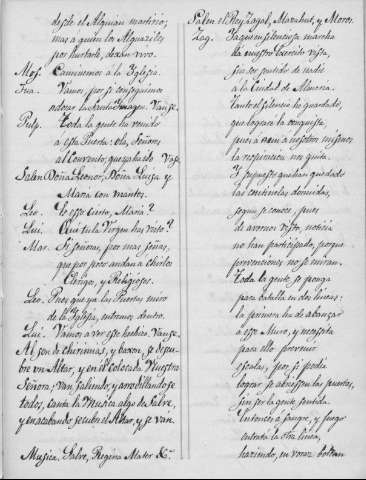 desde el Alguacil martirio;
mas a quien los Alguaciles
por hurtarle, dexan vivo.
Mos. Caminemos a la Iglesia.
Jua. Vamos, por si conseguimos
adorar la Santa Imagen. Vanse.
Pulp. Toda la gente ha venido
a esta Puerta: ola, Señores
al Convento, que ya ha ido Vas.
Salen Doña Leonor, Doña Luisa y
Maria con mantos.
Leo. Es esto cierto, Maria?
Lui. Que tu la Virgen has visto?
Mar. Si Señoras, por mas señas,
que por poco andan a chirlos
Clerigo, y Religiosos.
Leo. Pues que ya las Puertas miro
de la Iglesia, entremos dentro.
Lui. Vamos a ver este hechizo. Vanse.
Al son de chirimias, y baxon, se descu-
bre un Altar, y en el colocada Nuestra
Señora; van saliendo, y arrodillandose
todos, canta la Musica algo de Salve,
y en acabando se cubre el Altar, y se van.
Musica. Salve, Regina Mater &c.
Salen el Rey Zagal, Marahut, y Moros.
Zag. Ya que en silencio se marcha
ha nuestro Exercito visto,
sin ser sentido de nadie
a la Ciudad de Almeria.
Tanto el silencio ha guardado,
que lograra la conquista,
pues a aun a nosotros mismos
la respiracion nos quita.
Y supuesto que han quedado
las centinelas dormidas,
segun se conoce, pues
de avernos visto, noticia
no han participado, porque
prevenciones no se miran.
Toda la gente se ponga
para batalla en dos lineas;
la primera ha de abanzar
a esse Muro, y necessita
para ello prevenir
escalas, por si podia
lograr se abriessen las puertas,
sin ser la gente sentida.
Entonces a sangre, y fuego
entrarà la otra linea,
haciendo, en voraz bolcan